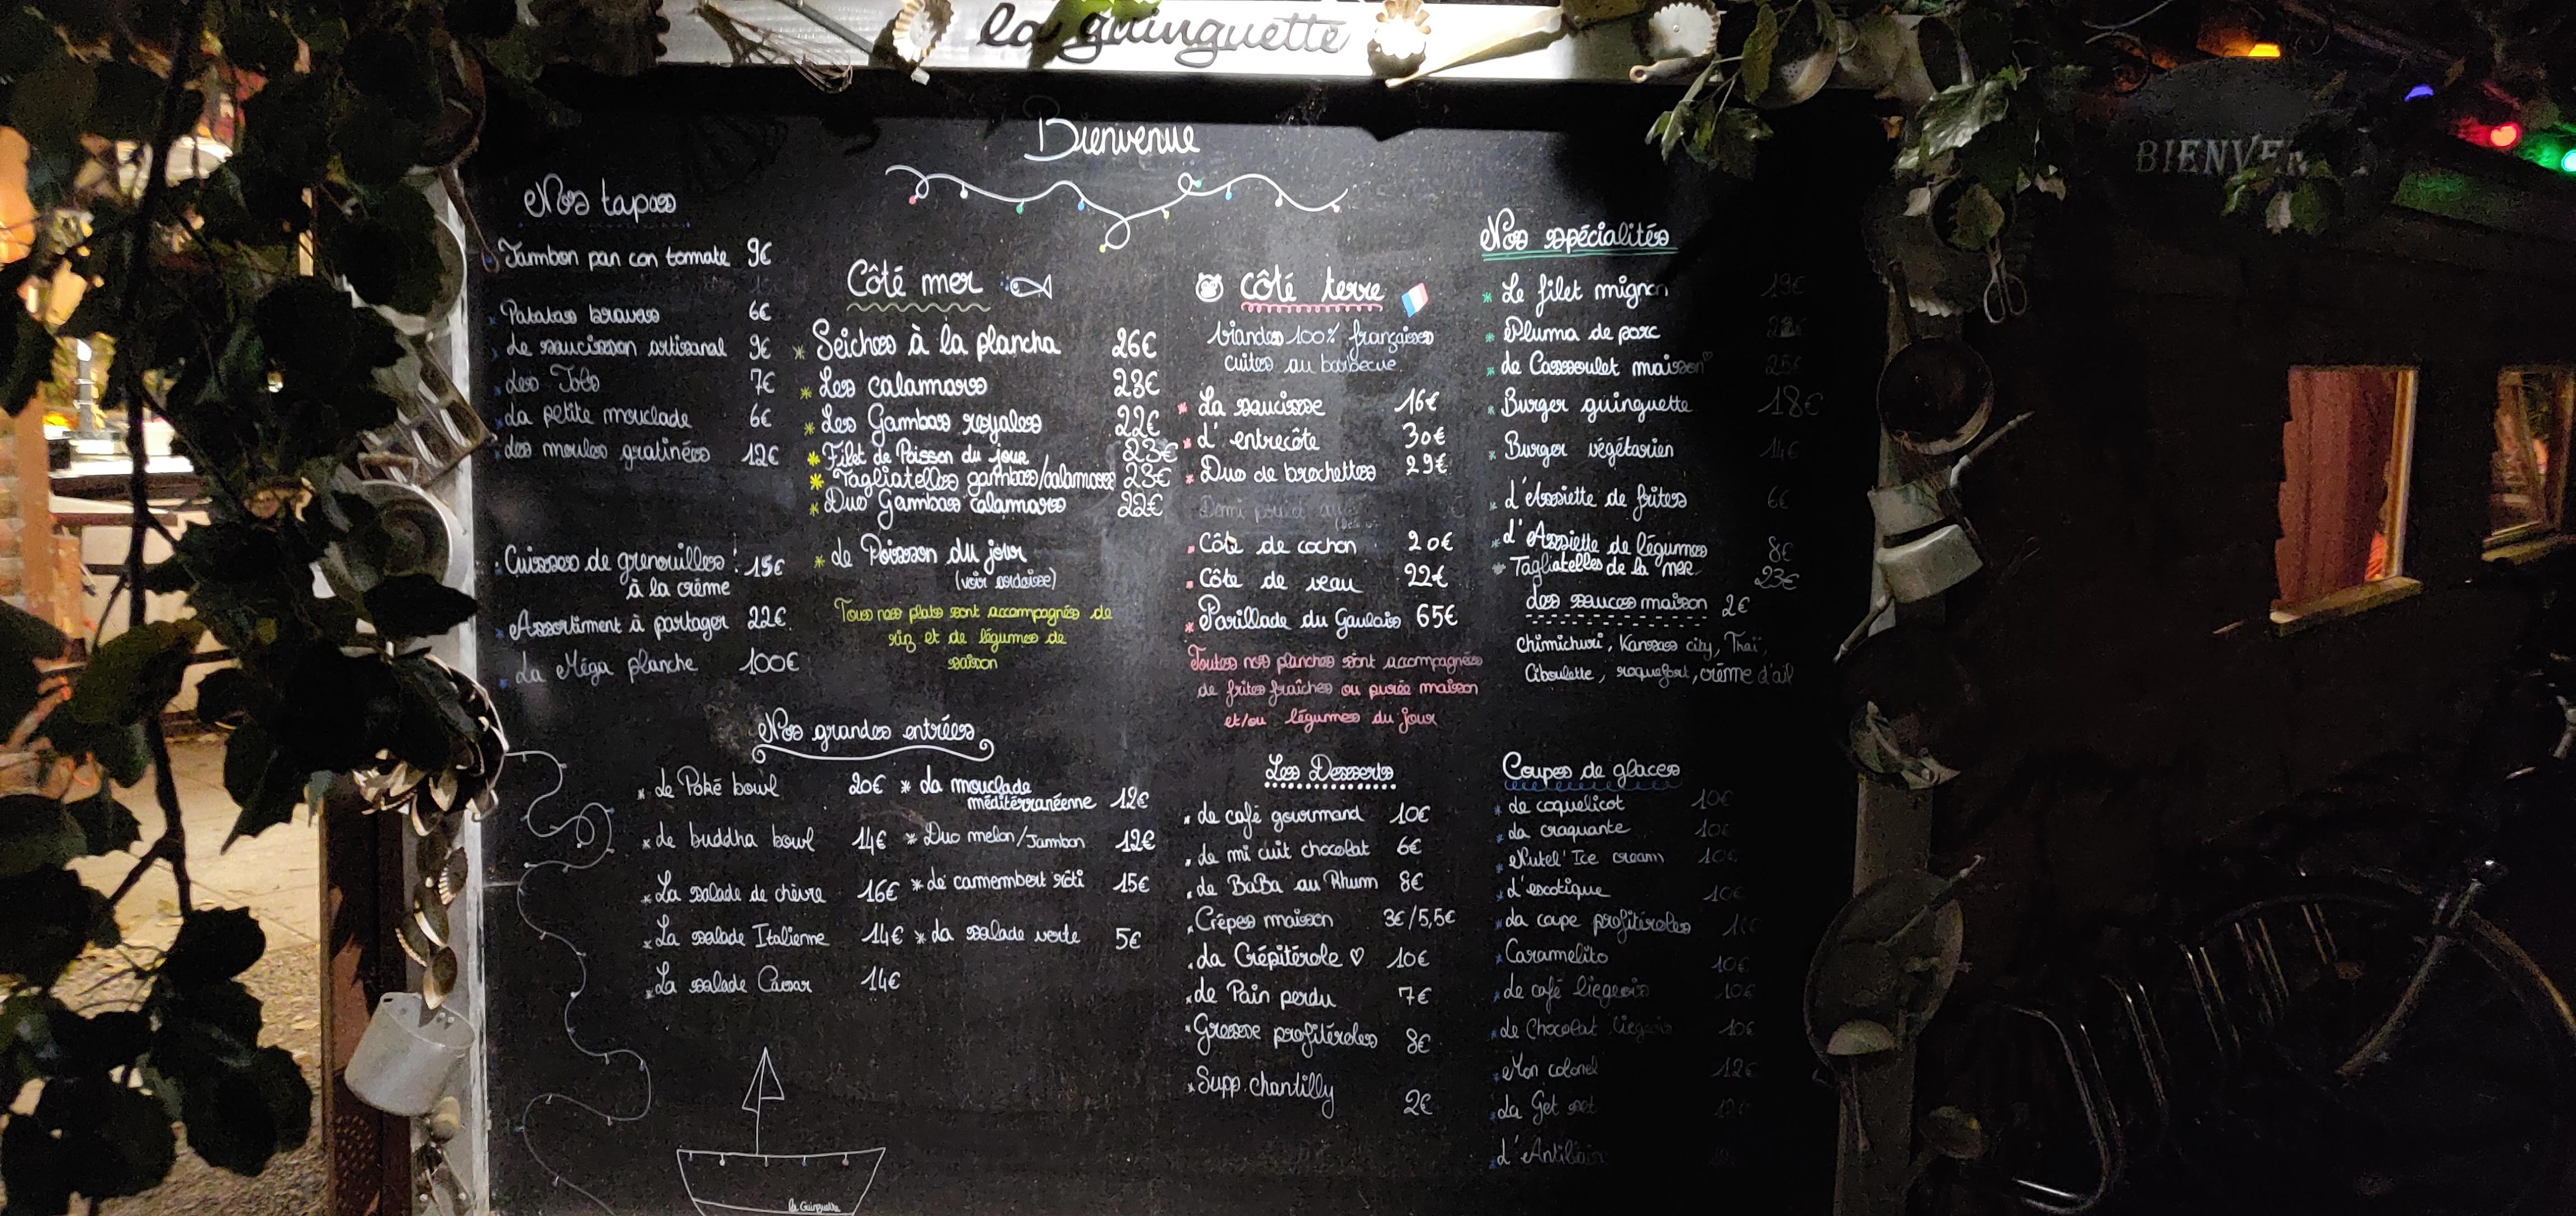 la guinguette
Bienvenue
BIENVEN
Nos tapas
Jambon pan con tomate 9€
Patatas bravas 6€
Le saucisson artisanal 9€
Les Tobs 7€
La petite mouclade 6€
Les moules gratinées 12€
Cuisses de grenouilles ! 15€
à la crème
Assortiment à partager 22€
La Méga planche 100€
Côté mer
Seiches à la plancha 26€
Les calamars 23€
Les Gambas royales 22€
Filet de Poisson du jour 23€
Tagliatelles gambas/calamars 23€
Duo Gambas calamars 22€
Le Poisson du jour
(voir ardoise)
Tous nos plats sont accompagnés de
riz et de légumes de
saison
côté terre
Viandes 100% françaises
cuites au barbecue.
La saucisse 16€
L'entrecôte 30€
Duo de brochettes 29€
Demi poulet
Côte de cochon 20€
Côte de veau 22€
Parillade du Gaulois 65€
Toutes nos planches sont accompagnées
de frites fraîches ou purée maison
et/ou légumes du jour
Nos spécialités
Le filet mignon 19€
Pluma de porc
Le Cassoulet maison
Burger guinguette 18€
Burger végétarien 14€
L'Assiette de frites 6€
L'Assiette de légumes 8€
Tagliatelles de la mer 23€
Les sauces maison 2€
Chimichuri, Kansas city, Thaï,
Ciboulette, roquefort, crème d'ail
Nos grandes entrées
Le Poké bowl 20€
Le buddha bowl 14€
La salade de chèvre 16€
La salade Italienne 14€
La salade Caesar 14€
La mouclade
méditerranéenne 12€
Duo melon/Jambon 12€
Le camembert rôti 15€
La salade verte 5€
Les Desserts
Le café gourmand 10€
Le mi cuit chocolat 6€
Le BaBa au Rhum 8€
Crêpes maison 3€/5,5€
La Crépiterole 10€
Le Pain perdu 7€
Grosse profiteroles 8€
Supp. chantilly 2€
Coupes de glaces
Le coquelicot 10€
La craquante 10€
Nutel'Ice cream 10€
L'exotique 10€
La coupe profiteroles
Caramelito 10€
Le café liégeois 10€
Le Chocolat liégeois 10€
Mon colonel 12€
La Get set
L'Antillais
la Guinguette